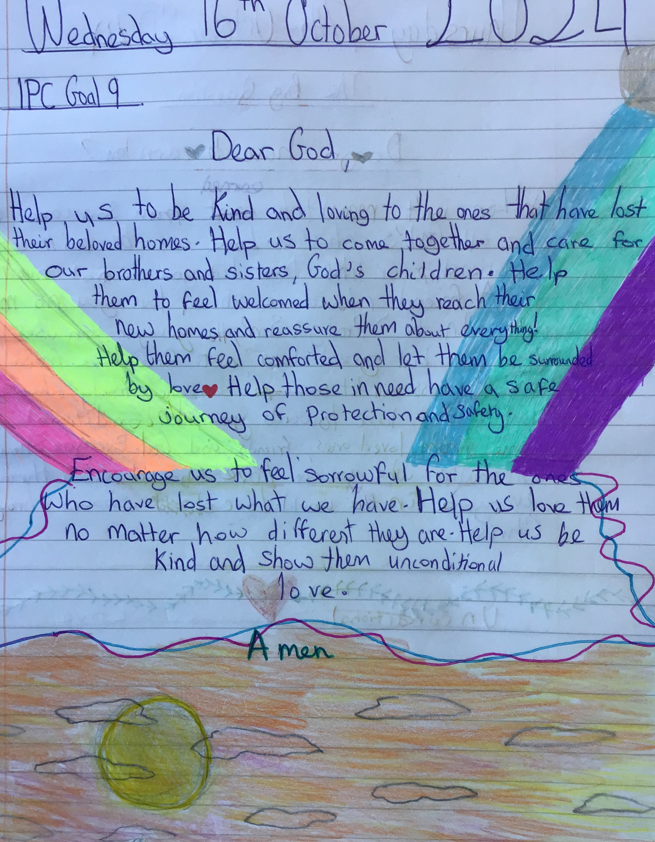 Wednesday 16th October 2024
IPC Goal 9
Dear God,
Help us to be Kind and loving to the ones that have lost
their beloved homes. Help us to come together and care for
our brothers and sisters, God's children. Help
them to feel welcomed when they reach their
new homes and reassure them about everything!
Help them feel comforted and let them be surrounded
by love♥ Help those in need have a safe
journey of Protection and safety.
Encourage us to feel sorrowful for the ones
who have lost what we have. Help us love them
no matter how different they are. Help us be
Kind and show them unconditional
love.
Amen